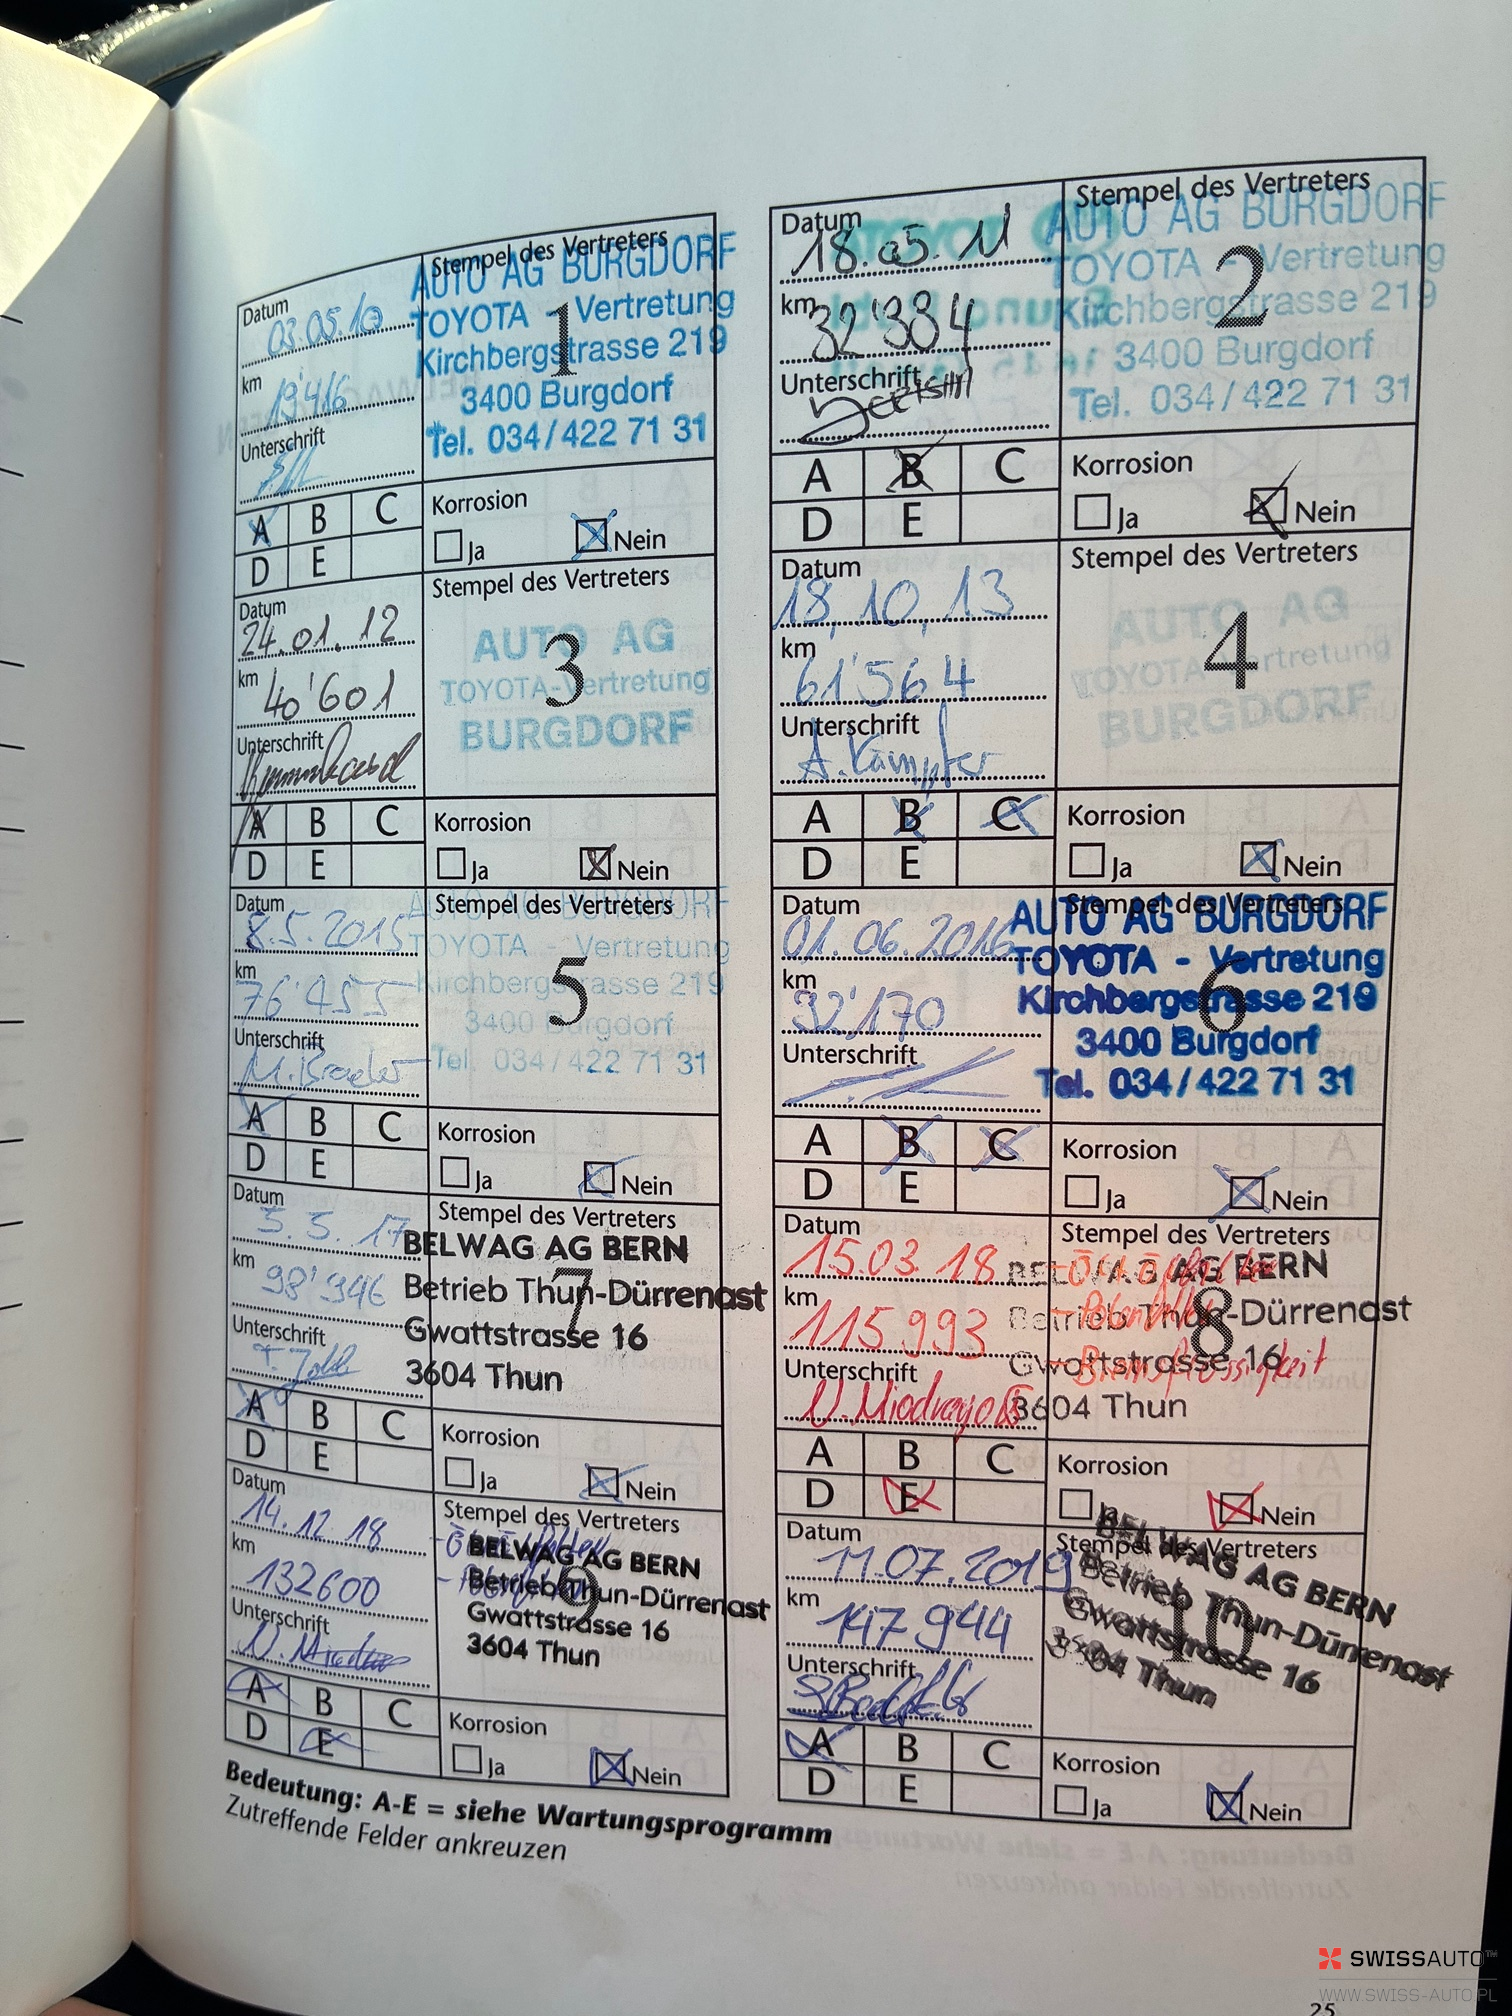 Datum 03.05.10
km 19'416
Unterschrift
Stempel des Vertreters
AUTO AG BURGDORF
TOYOTA - Vertretung
Kirchbergstrasse 219
3400 Burgdorf
Tel. 034/422 71 31
1
A B C
D E
Korrosion
Ja Nein
Datum
18.05.11
km
32'384
Unterschrift
Stempel des Vertreters
AUTO AG BURGDORF
TOYOTA - Vertretung
Kirchbergstrasse 219
3400 Burgdorf
Tel. 034/422 71 31
2
A B C
D E
Korrosion
Ja Nein
Datum
24.01.12
km 40'601
Unterschrift
Stempel des Vertreters
AUTO AG
TOYOTA-Vertretung
BURGDORF
3
A B C
D E
Korrosion
Ja Nein
Datum
18.10.13
km
61'564
Unterschrift
A. Kämpfer
Stempel des Vertreters
AUTO AG
TOYOTA-Vertretung
BURGDORF
4
A B C
D E
Korrosion
Ja Nein
Datum
8.5.2015
km
76'455
Unterschrift
Stempel des Vertreters
AUTO AG BURGDORF
TOYOTA - Vertretung
Kirchbergstrasse 219
3400 Burgdorf
Tel. 034/422 71 31
5
A B C
D E
Korrosion
Ja Nein
Datum
01.06.2016
km
92'170
Unterschrift
Stempel des Vertreters
AUTO AG BURGDORF
TOYOTA - Vertretung
Kirchbergstrasse 219
3400 Burgdorf
Tel. 034/422 71 31
6
A B C
D E
Korrosion
Ja Nein
Datum
km
98'946
Unterschrift
Stempel des Vertreters
BELWAG AG BERN
Betrieb Thun-Dürrenast
Gwattstrasse 16
3604 Thun
7
A B C
D E
Korrosion
Ja Nein
Datum
15.03.18
km
115993
Unterschrift
Stempel des Vertreters
BELWAG AG BERN
Betrieb Thun-Dürrenast
Gwattstrasse 16
3604 Thun
- Bremsflüssigkeit
8
A B C
D E
Korrosion
Ja Nein
Datum
14.12.18
km
132600
Unterschrift
Stempel des Vertreters
BELWAG AG BERN
Betrieb Thun-Dürrenast
Gwattstrasse 16
3604 Thun
9
A B C
D E
Korrosion
Ja Nein
Datum
11.07.2019
km
147944
Unterschrift
Stempel des Vertreters
BELWAG AG BERN
Betrieb Thun-Dürrenast
Gwattstrasse 16
3604 Thun
10
A B C
D E
Korrosion
Ja Nein
Bedeutung: A-E = siehe Wartungsprogramm
Zutreffende Felder ankreuzen
25
SWISSAUTO™
WWW.SWISS-AUTO.PL